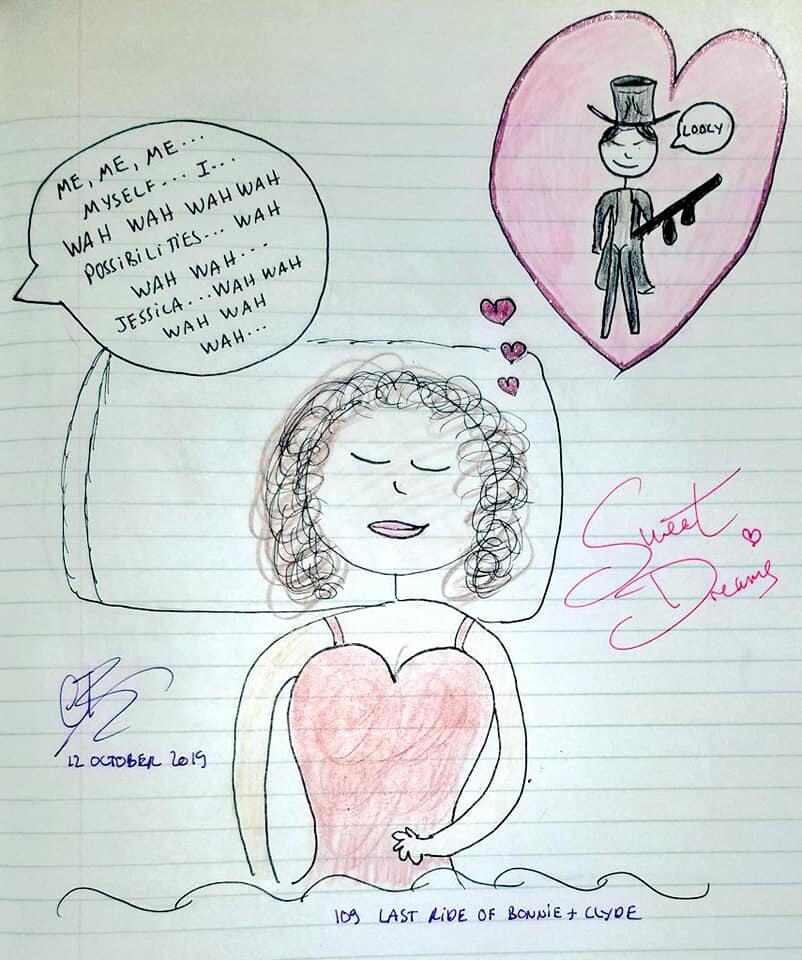 ME, ME, ME...
MYSELF... I...
WAH WAH WAH WAH
POSSIBILITIES... WAH
WAH WAH...
JESSICA... WAH WAH
WAH WAH
WAH...
LOOLY
Sweet
Dreams
12 OCTOBER 2019
109 LAST RIDE OF BONNIE + CLYDE